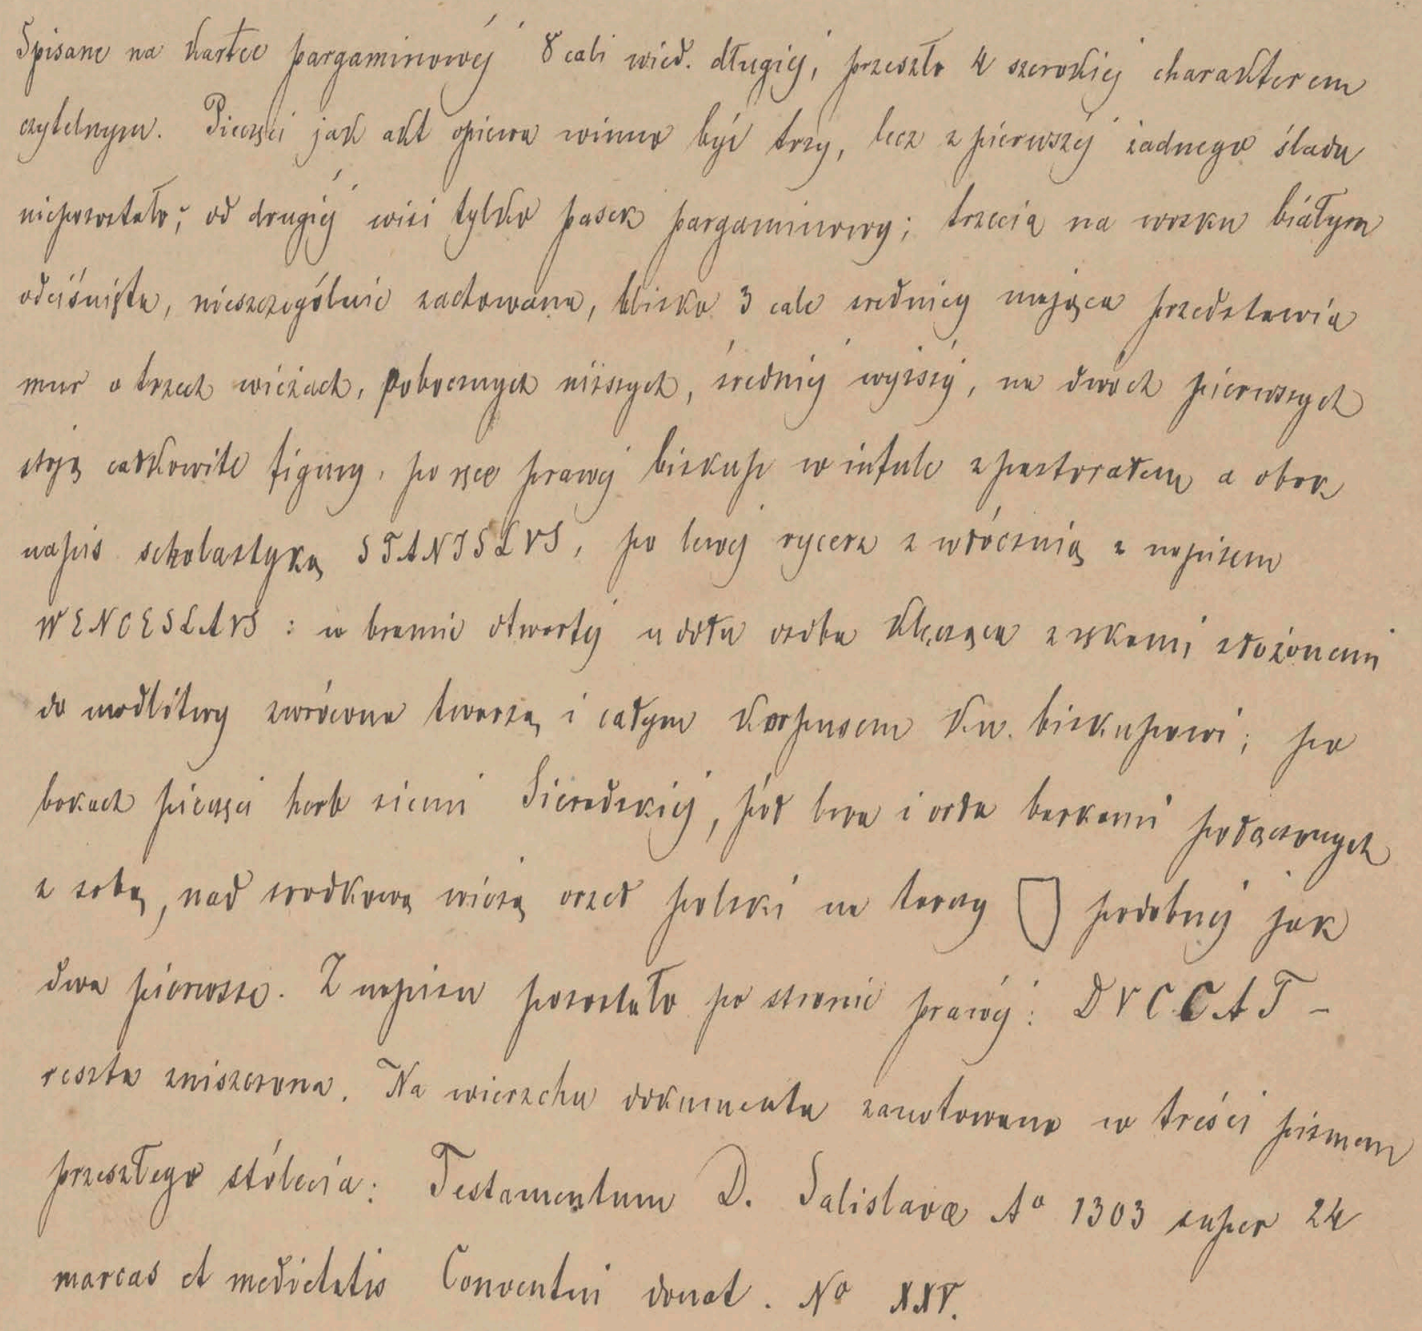 Spisane na kartce pargaminowéj 8 cali wied. długiéj, przeszło 4 szerokiéj charakterem
czytelnym. Pieczęci jak akt opiewa winno być trzy, lecz z pierwszéj żadnego śladu
niepozostało; od drugiéj wisi tylko pasek pargaminowy; trzecia na wosku białym
odciśnięta, nieszczególnie zachowana, blisko 3 cale srednicy mająca przedstawia
mur o trzech wieżach, pobocznych niższych, średniéj wyższéj, na dwóch pierwszych
stoją całkowite figury, po ręce prawéj biskup w infule z pastorałem a obok
napis scholastyką STANISLVS, po lewéj rycerz z włócznią z napisem
WENCESLAVS: w bramie otwartéj u dołu osoba klęcząca z rękami złożonemi
do modlitwy zwrócona twarzą i całym korpusem ku biskupowi; po
bokach pieczęci herb ziemi Sieradzkiéj, pół lwa i orła barkami połączonych
z sobą, nad srodkową wieżą orzeł polski na tarczy podobnéj jak
dwa pierwsze. Z napisu pozostało po stronie prawéj: DVCCAT –
reszta zniszczona. Na wierzchu dokumentu zanotowano w treści pismem
przeszłego stólecia: Testamentum D. Salislavæ Aº 1303 super 24
marcas et medietatis Conventui donat. Nº XXV.